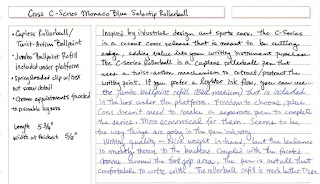 Cross C-Series Monaco Blue Selectip Rollerball
• Capless Rollerball/
Twist-Action Ballpoint
• Jumbo Ballpoint Refill
included under platform
• Spring loaded clip w/ toes
not accent detail
• Chrome appointments faceted
to resemble lug nuts
Length 5 3/4"
width at thickest 5/8"
Inspired by industrial design and sports cars, the C-Series
is a recent Cross issuance that is meant to be cutting
edge, adding value to your writing instrument purchase.
The C-Series Rollerball is a capless rollerball pen that
uses a twist-action mechanism to retract/protract the
writing point. If you prefer a lighter ink flow, you can use
the jumbo ballpoint refill (Ball medium) that is included
in the box under the platform. Freedom to choose, plus
Cross doesn't need to make a separate pen to complete
the series. More economical for them. Seems to be
the way things are going in the pen industry.
Writing quality - Nice weight in hand, but the balance
is mostly thrown to the backend. Coupled with the faceted
chrome around the forefinger area, the pen is not all that
comfortable to write with. The rollerball refill is much better